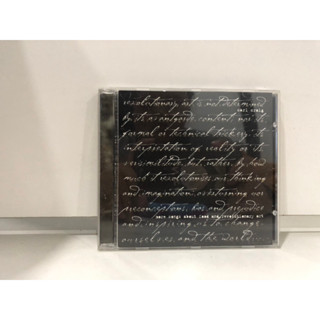 revolutionary art is not determined
carl craig
by its avantgarde content nor its
formal or technical trickery, its
interpretation of reality or its
verisimilitude but, rather, by how
much it revolutionises our thinking
and imagination, overturning our
more songs about food and revolutionary art
preconceptions, bias and prejudice
and inspiring us to change
ourselves and the world